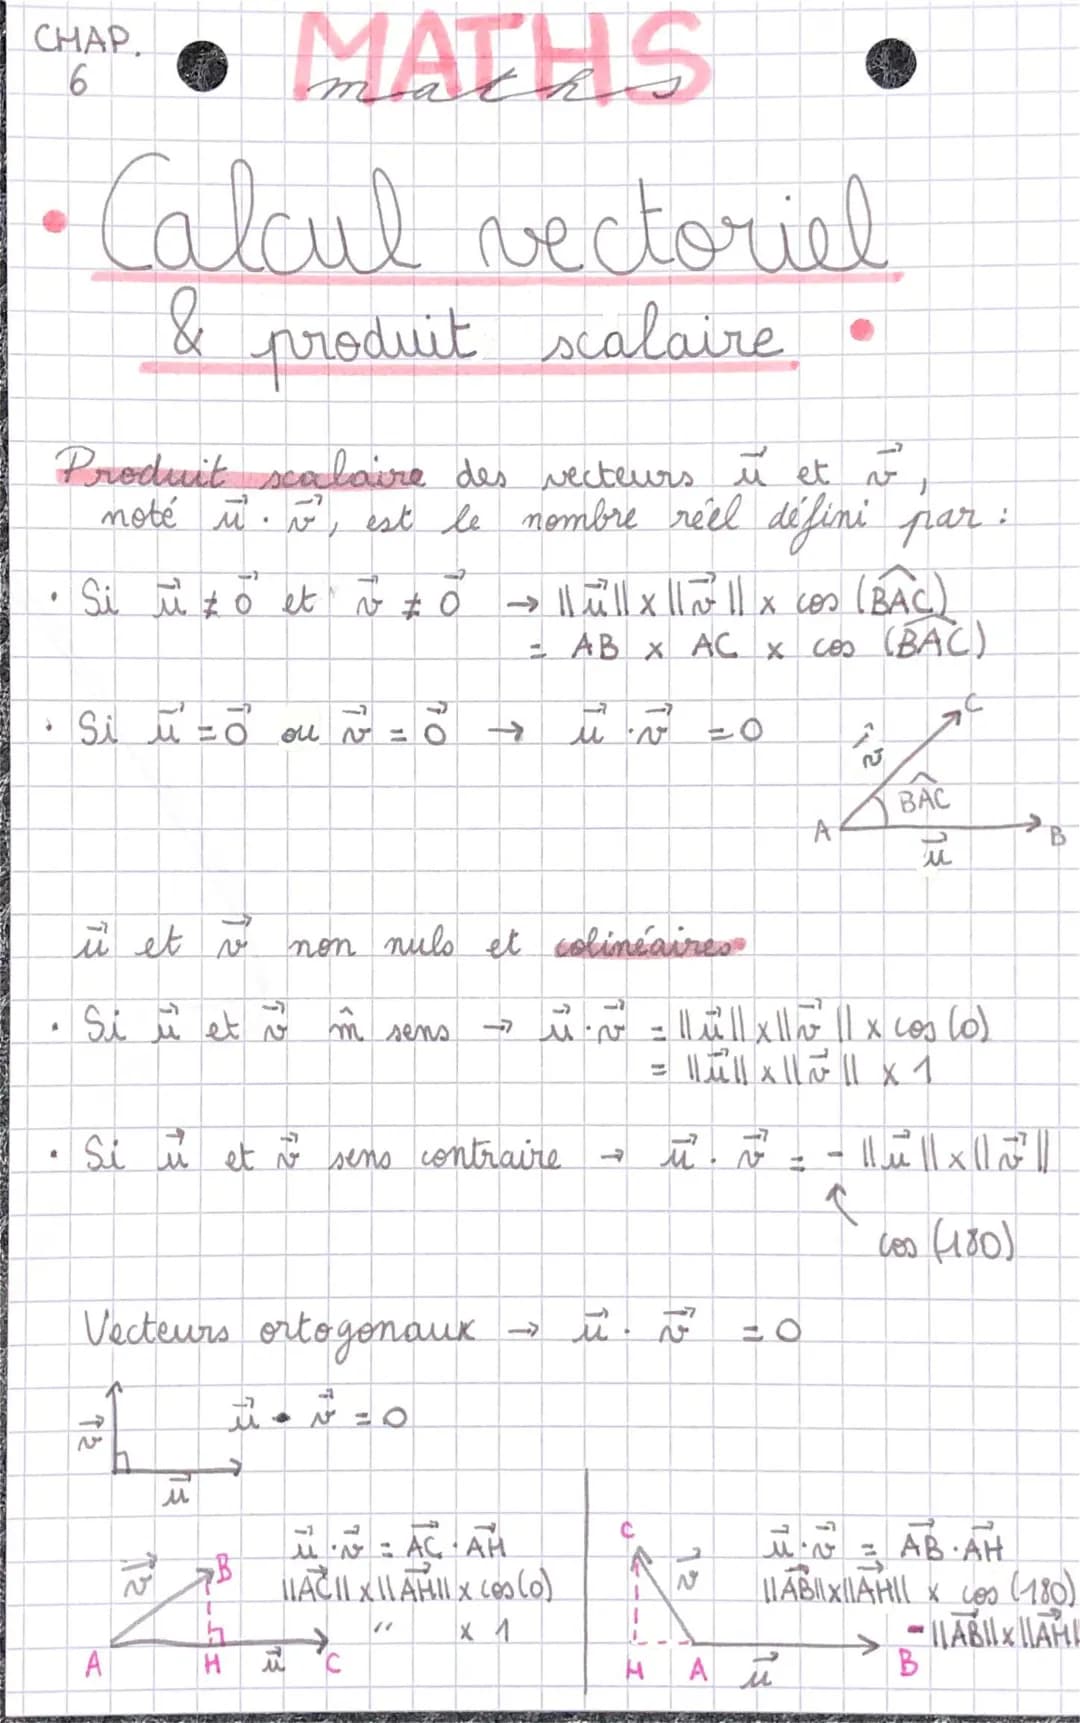 CHAP.
6
MATHS
maths
• Calcul vectoriel
& produit scalaire •
Produit scalaire des vecteurs u⃗ et v⃗,
noté u⃗ · v⃗, est le nombre réel défini par :
· Si u⃗ ≠ 0⃗ et v⃗ ≠ 0⃗ → ||u⃗|| x ||v⃗|| x cos (B̂AC)
= AB x AC x cos (B̂AC)
· Si u⃗ = 0⃗ ou v⃗ = 0⃗ → u⃗ · v⃗ = 0
C
v⃗
B̂AC
A
B
u⃗
u⃗ et v⃗ non nuls et colinéaires
· Si u⃗ et v⃗ m̂ sens → u⃗ · v⃗ = ||u⃗|| x ||v⃗|| x cos (0)
= ||u⃗|| x ||v⃗|| x 1
· Si u⃗ et v⃗ sens contraire → u⃗ · v⃗ = - ||u⃗|| x ||v⃗||
cos (180)
Vecteurs ortogonaux → u⃗ · v⃗ = 0
v⃗
u⃗ · v⃗ = 0
u⃗
v⃗
B
A
H
u⃗
C
u⃗ · v⃗ = AC⃗ · AH⃗
||AC⃗|| x ||AH⃗|| x cos (0)
" x 1
C
v⃗
H
A
u⃗
B
u⃗ · v⃗ = AB⃗ · AH⃗
||AB⃗|| x ||AH⃗|| x cos (180)
- ||AB⃗|| x ||AH⃗|